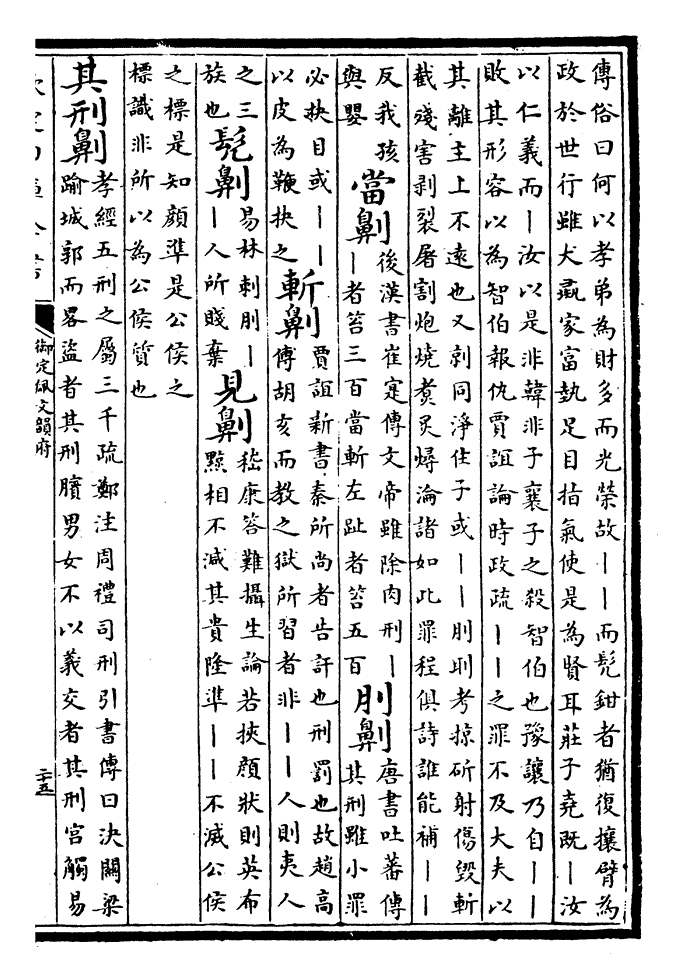 傳俗曰何以孝弟為財多而光榮故丨丨而髠鉗者猶復攘臂為
政於世行雖犬彘家富埶足目指氣使是為賢耳莊子堯既丨汝
以仁義而丨汝以是非韓非子襄子之殺智伯也豫讓乃自丨丨
敗其形容以為智伯報仇賈誼論時政疏丨丨之罪不及大夫以
其離主上不遠也又剠同淨住子或丨丨刖刵考掠斫射傷毀斬
截殘害剥裂屠割炮燒煑炙燖瀹諸如此罪程俱詩誰能補丨丨
反我孩
與嬰
當劓
後漢書崔寔傳文帝雖除肉刑丨
丨者笞三百當斬左趾者笞五百
刖劓
唐書吐蕃傳
其刑雖小罪
必抉目或丨丨
以皮為鞭抶之
斬劓
賈誼新書秦所尚者告訐也刑罰也故趙高
傅胡亥而教之獄所習者非丨丨人則夷人
之三
族也
髠劓
易林刺刖丨
丨人所賤棄
見劓
嵇康答難攝生論若挾顏狀則英布
黥相不減其貴隆準丨丨不減公侯
之標是知顏準是公侯之
標識非所以為公侯質也
其刑劓
孝經五刑之屬三千疏鄭注周禮司刑引書傳曰決關梁
踰城郭而畧盜者其刑臏男女不以義交者其刑宮觸易
欽定四庫全書
御定佩文韻府
二十五